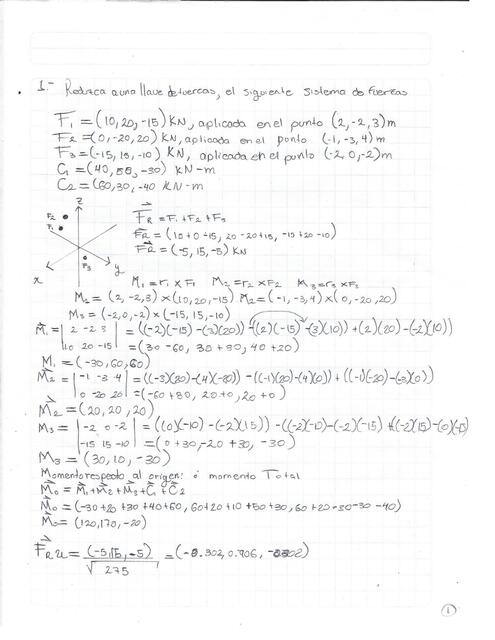 1.- Reduzca a una llave de tuercas, el siguiente sistema de fuerzas
F1 = (10,20,-15) KN, aplicada en el punto (2,-2,3)m
F2 = (0,-20,20) KN, aplicada en el punto (-1,-3,4)m
F3 = (-15,15,-10) KN, aplicada en el punto (-2,0,-2)m
C1 = (40,50,-30) KN-m
C2 = (60,30,-40 KN-m
z
F2
F1
F3
x
y
FR = F1+F2+F3
FR = (10+0-15, 20-20+15, -15+20-10)
FR = (-5,15,-5) KN
M1 = r1 x F1 M2 = r2 x F2 M3 = r3 x F3
M1 = (2,-2,3) x (10,20,-15) M2 = (-1,-3,4) x (0,-20,20)
M3 = (-2,0,-2) x (-15,15,-10)
M1 = | 2 -2 3 | = ((-2)(-15)-(3)(20)) - ((2)(-15)-(3)(10)) + (2)(20)-(-2)(10))
10 20 -15 | = (30-60, 30+30, 40+20)
M1 = (-30,60,60)
M2 = | -1 -3 4 | = ((-3)(20)-(4)(-20)) - ((-1)(20)-(4)(0)) + ((-1)(-20)-(-3)(0))
0 -20 20 | = (-60+80, 20+0, 20+0)
M2 = (20,20,20)
M3 = | -2 0 -2 | = ((0)(-10)-(-2)(15)) - ((-2)(-10)-(-2)(-15) + (-2)(15)-(0)(-15)
-15 15 -10 | = (0+30, -20+30, -30)
M3 = (30,10,-30)
Momento respecto al origen: ó momento Total
Mo = M1+M2+M3+C1+C2
Mo = (-30+20+30+40+60, 60+20+10+50+30, 60+20-30-30-40)
Mo = (120,170,-20)
FRu = (-5,15,-5) = (-0.302,0.906,-0.302)
√275
1